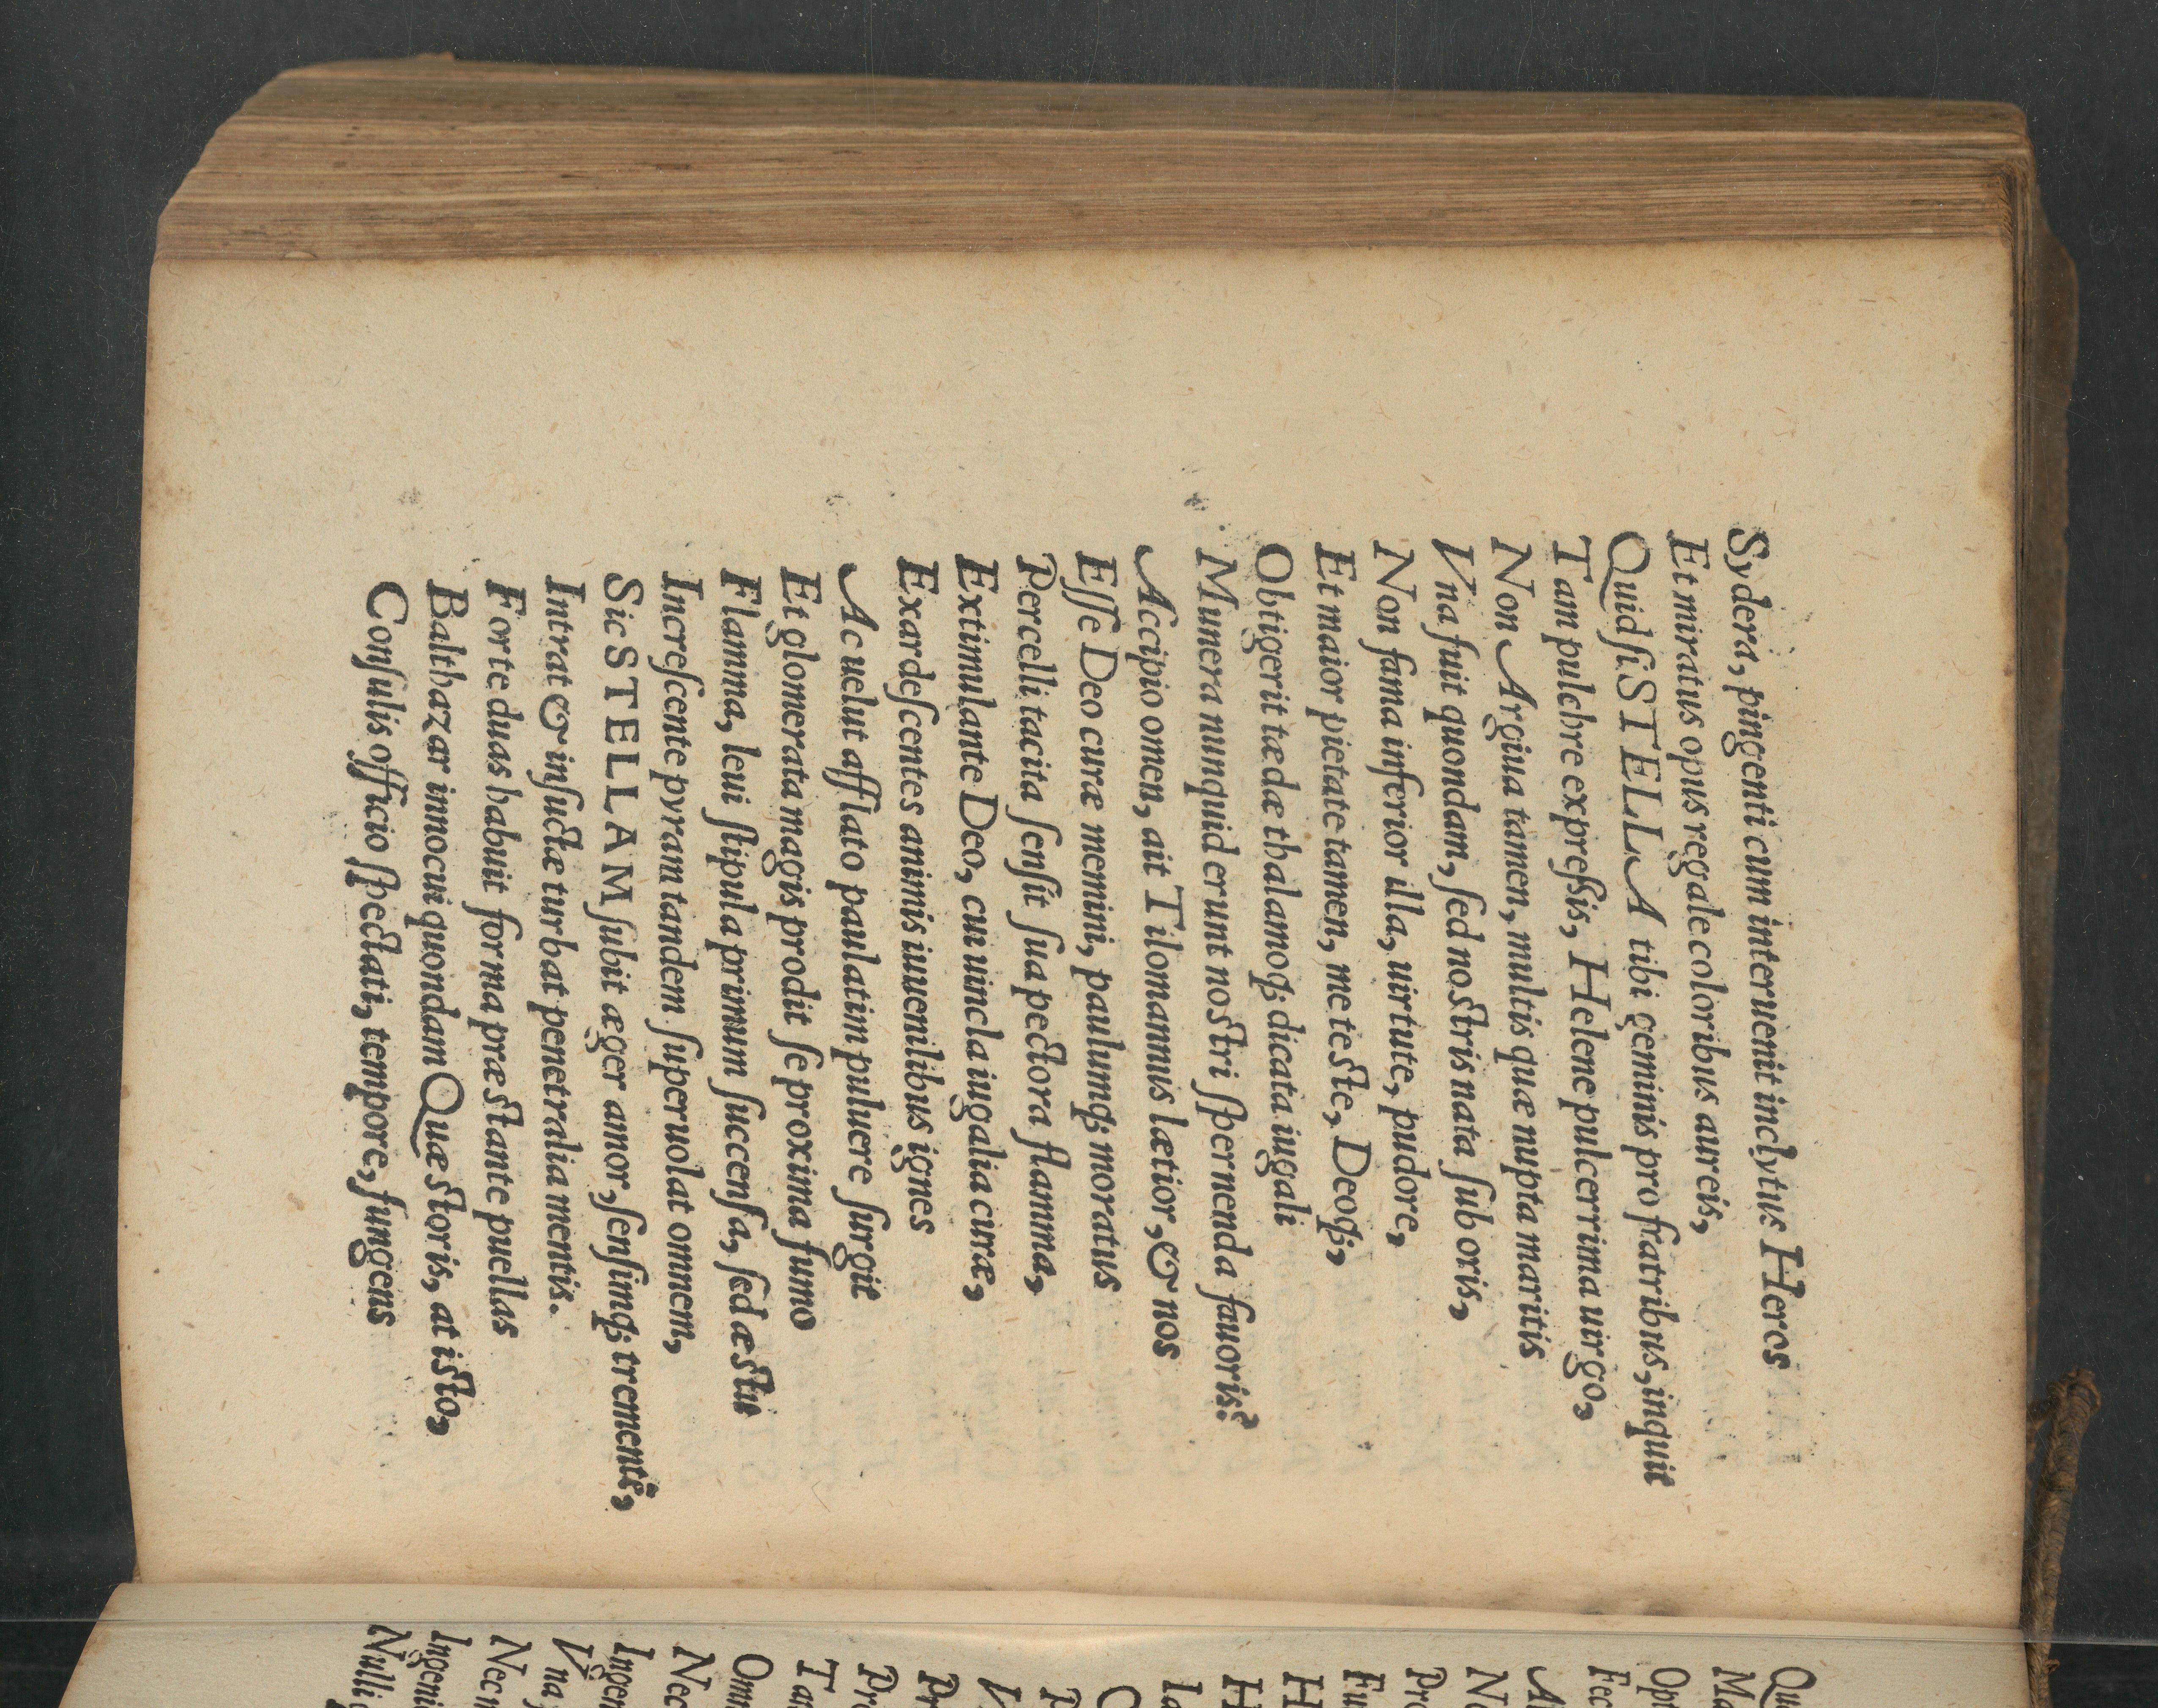 Sydera, pingenti cum interuenit inclytus Heros
Et miratus opus regale coloribus aureis,
Quid ſi STELLA tibi geminis pro fratribus, inquit
Tam pulchre expreſsis, Helene pulcerrima uirgo,
Non Argiua tamen, multis quæ nupta maritis
Vna fuit quondam, ſed noſtris nata ſub oris,
Non fama inferior illa, uirtute, pudore,
Et maior pietate tamen, me teſte, Deoq́;,
Obtigerit tædæ thalamoq́; dicata iugali
Munera nunquid erunt noſtri ſpernenda fauoris?
Accipio omen, ait Tilomannus lætior, & nos
Eſſe Deo curæ memini, paulumq́; moratus
Percelli tacita ſenſit ſua pectora flamma,
Extimulante Deo, cui uincla iugalia curæ,
Exardeſcentes animis iuuenilibus ignes
Ac uelut afflato paulatim puluere ſurgit
Et glomerata magis prodit ſe proxima fumo
Flamma, leui ſtipula primum ſuccenſa, ſed æſtu
Increſcente pyram tandem ſuperuolat omnem,
Sic STELLAM ſubit æger amor, ſenſimq́; trementi,
Intrat & inſuctæ turbat penetralia mentis.
Forte duas habuit forma præſtante puellas
Balthazar innocui quondam Quæſtoris, at iſto,
Conſulis officio ſpectati, tempore, fungens
Qu
Ma
Opt
Fec
N
Pro
Fu
H
H
Ia
Pr
Pr
Ta
Omn
Nec
Ingen
Vna
Nec
Ingeni
Nulli